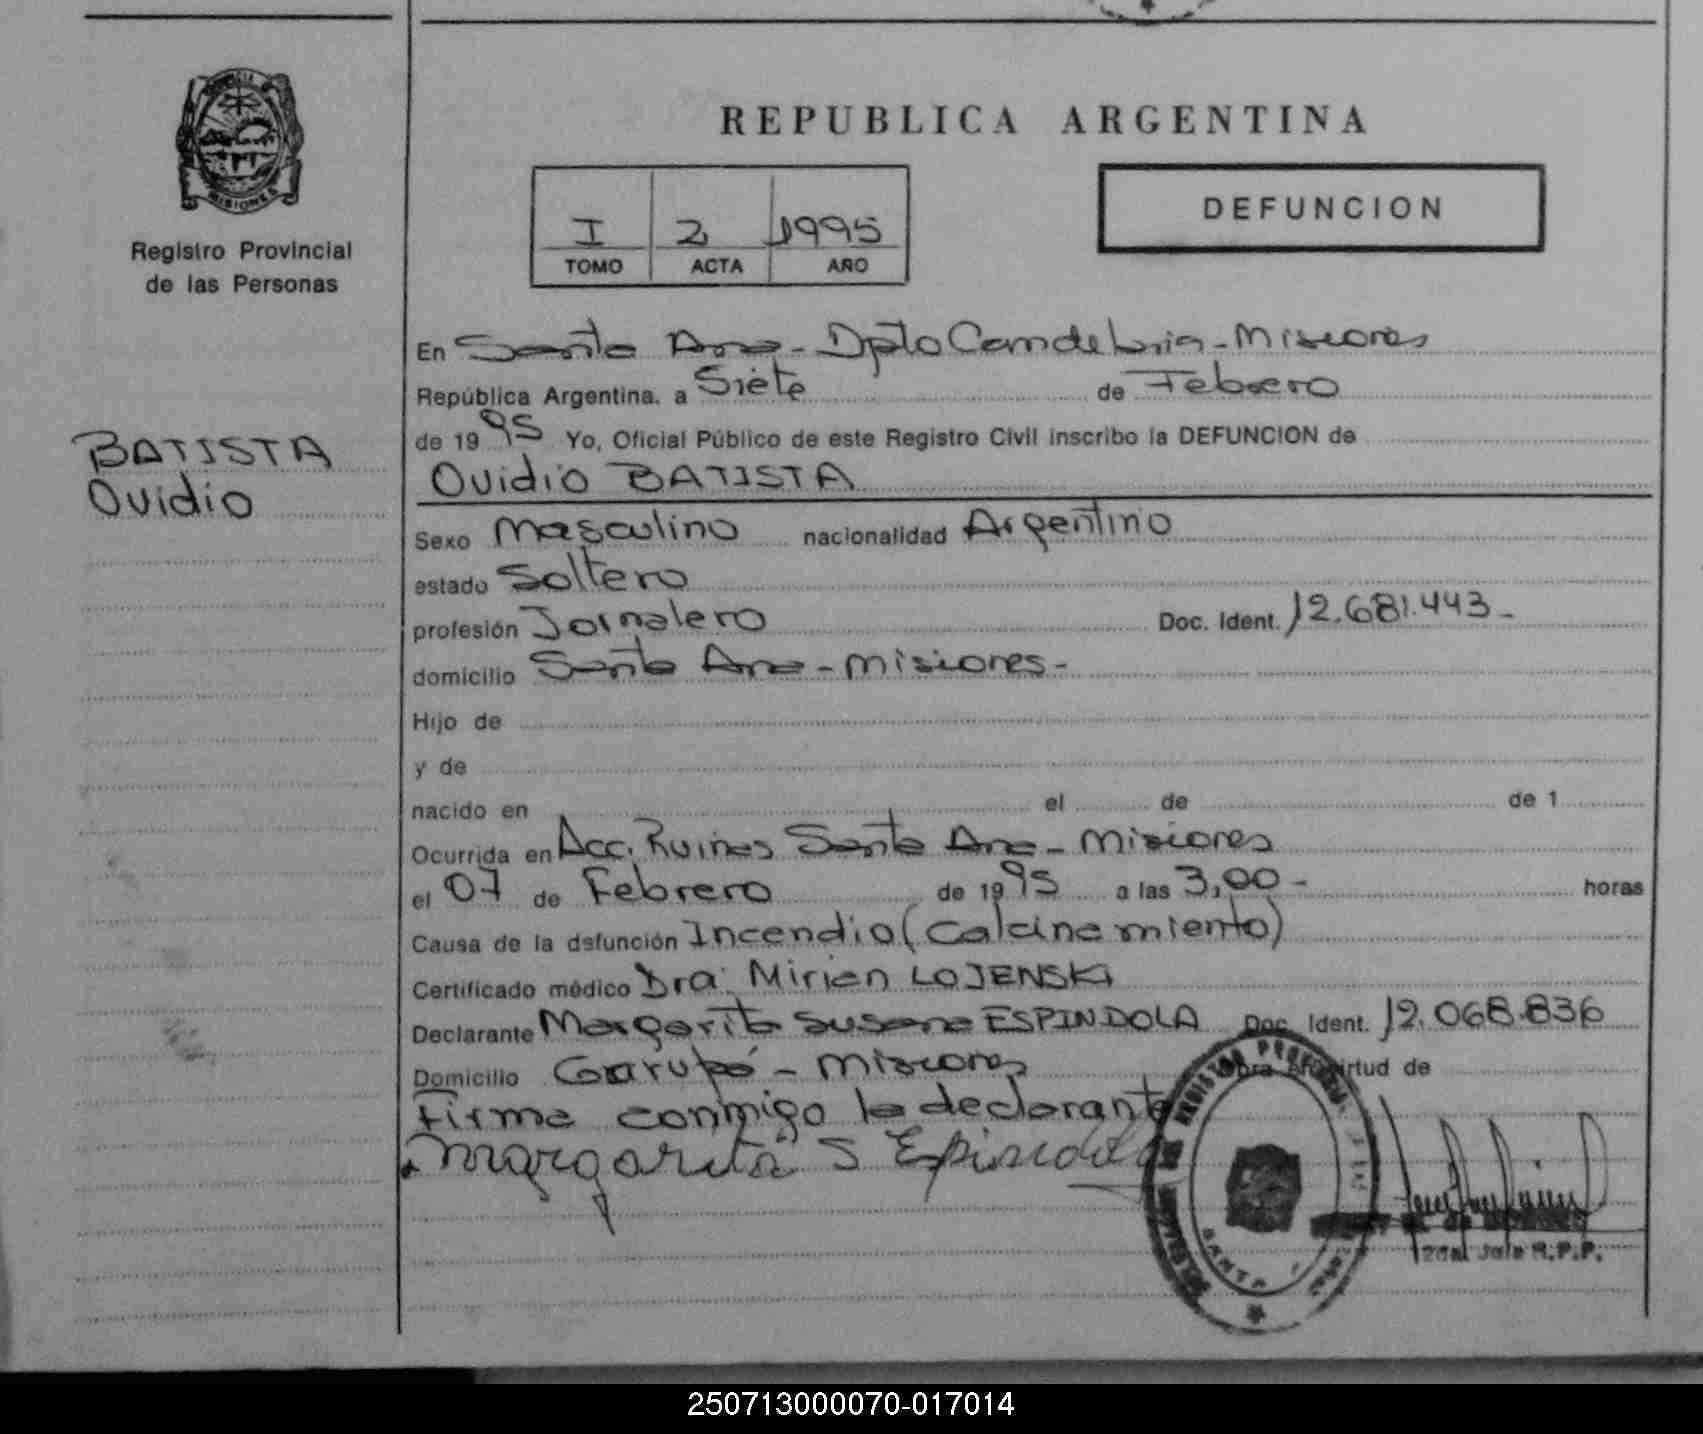 MISIONES
Registro Provincial
de las Personas
BATISTA
Ovidio
REPUBLICA ARGENTINA
I 2 1995
TOMO ACTA AÑO
DEFUNCION
En Santa Ana - Dpto Candelaria - Misiones
República Argentina, a Siete de Febrero
de 19 95 Yo, Oficial Público de este Registro Civil inscribo la DEFUNCION de
Ovidio BATISTA
Sexo Masculino nacionalidad Argentino
estado Soltero
profesión Jornalero Doc. Ident. 12.681.443-
domicilio Santa Ana - Misiones -
Hijo de
y de
nacido en el de de 1
Ocurrida en Acc. Ruinas Santa Ana - Misiones
el 07 de Febrero de 19 95 a las 3,00 - horas
Causa de la defunción Incendio (Calcinamiento)
Certificado médico Dra. Mirian LOJENSKI
Declarante Margarita Susana ESPINDOLA Doc. Ident. 12.068.836
Domicilio Garupá - Misiones Obra en virtud de
Firma conmigo la declarante
Margarita S Epindola
SANTA
R.P.P.
250713000070-017014